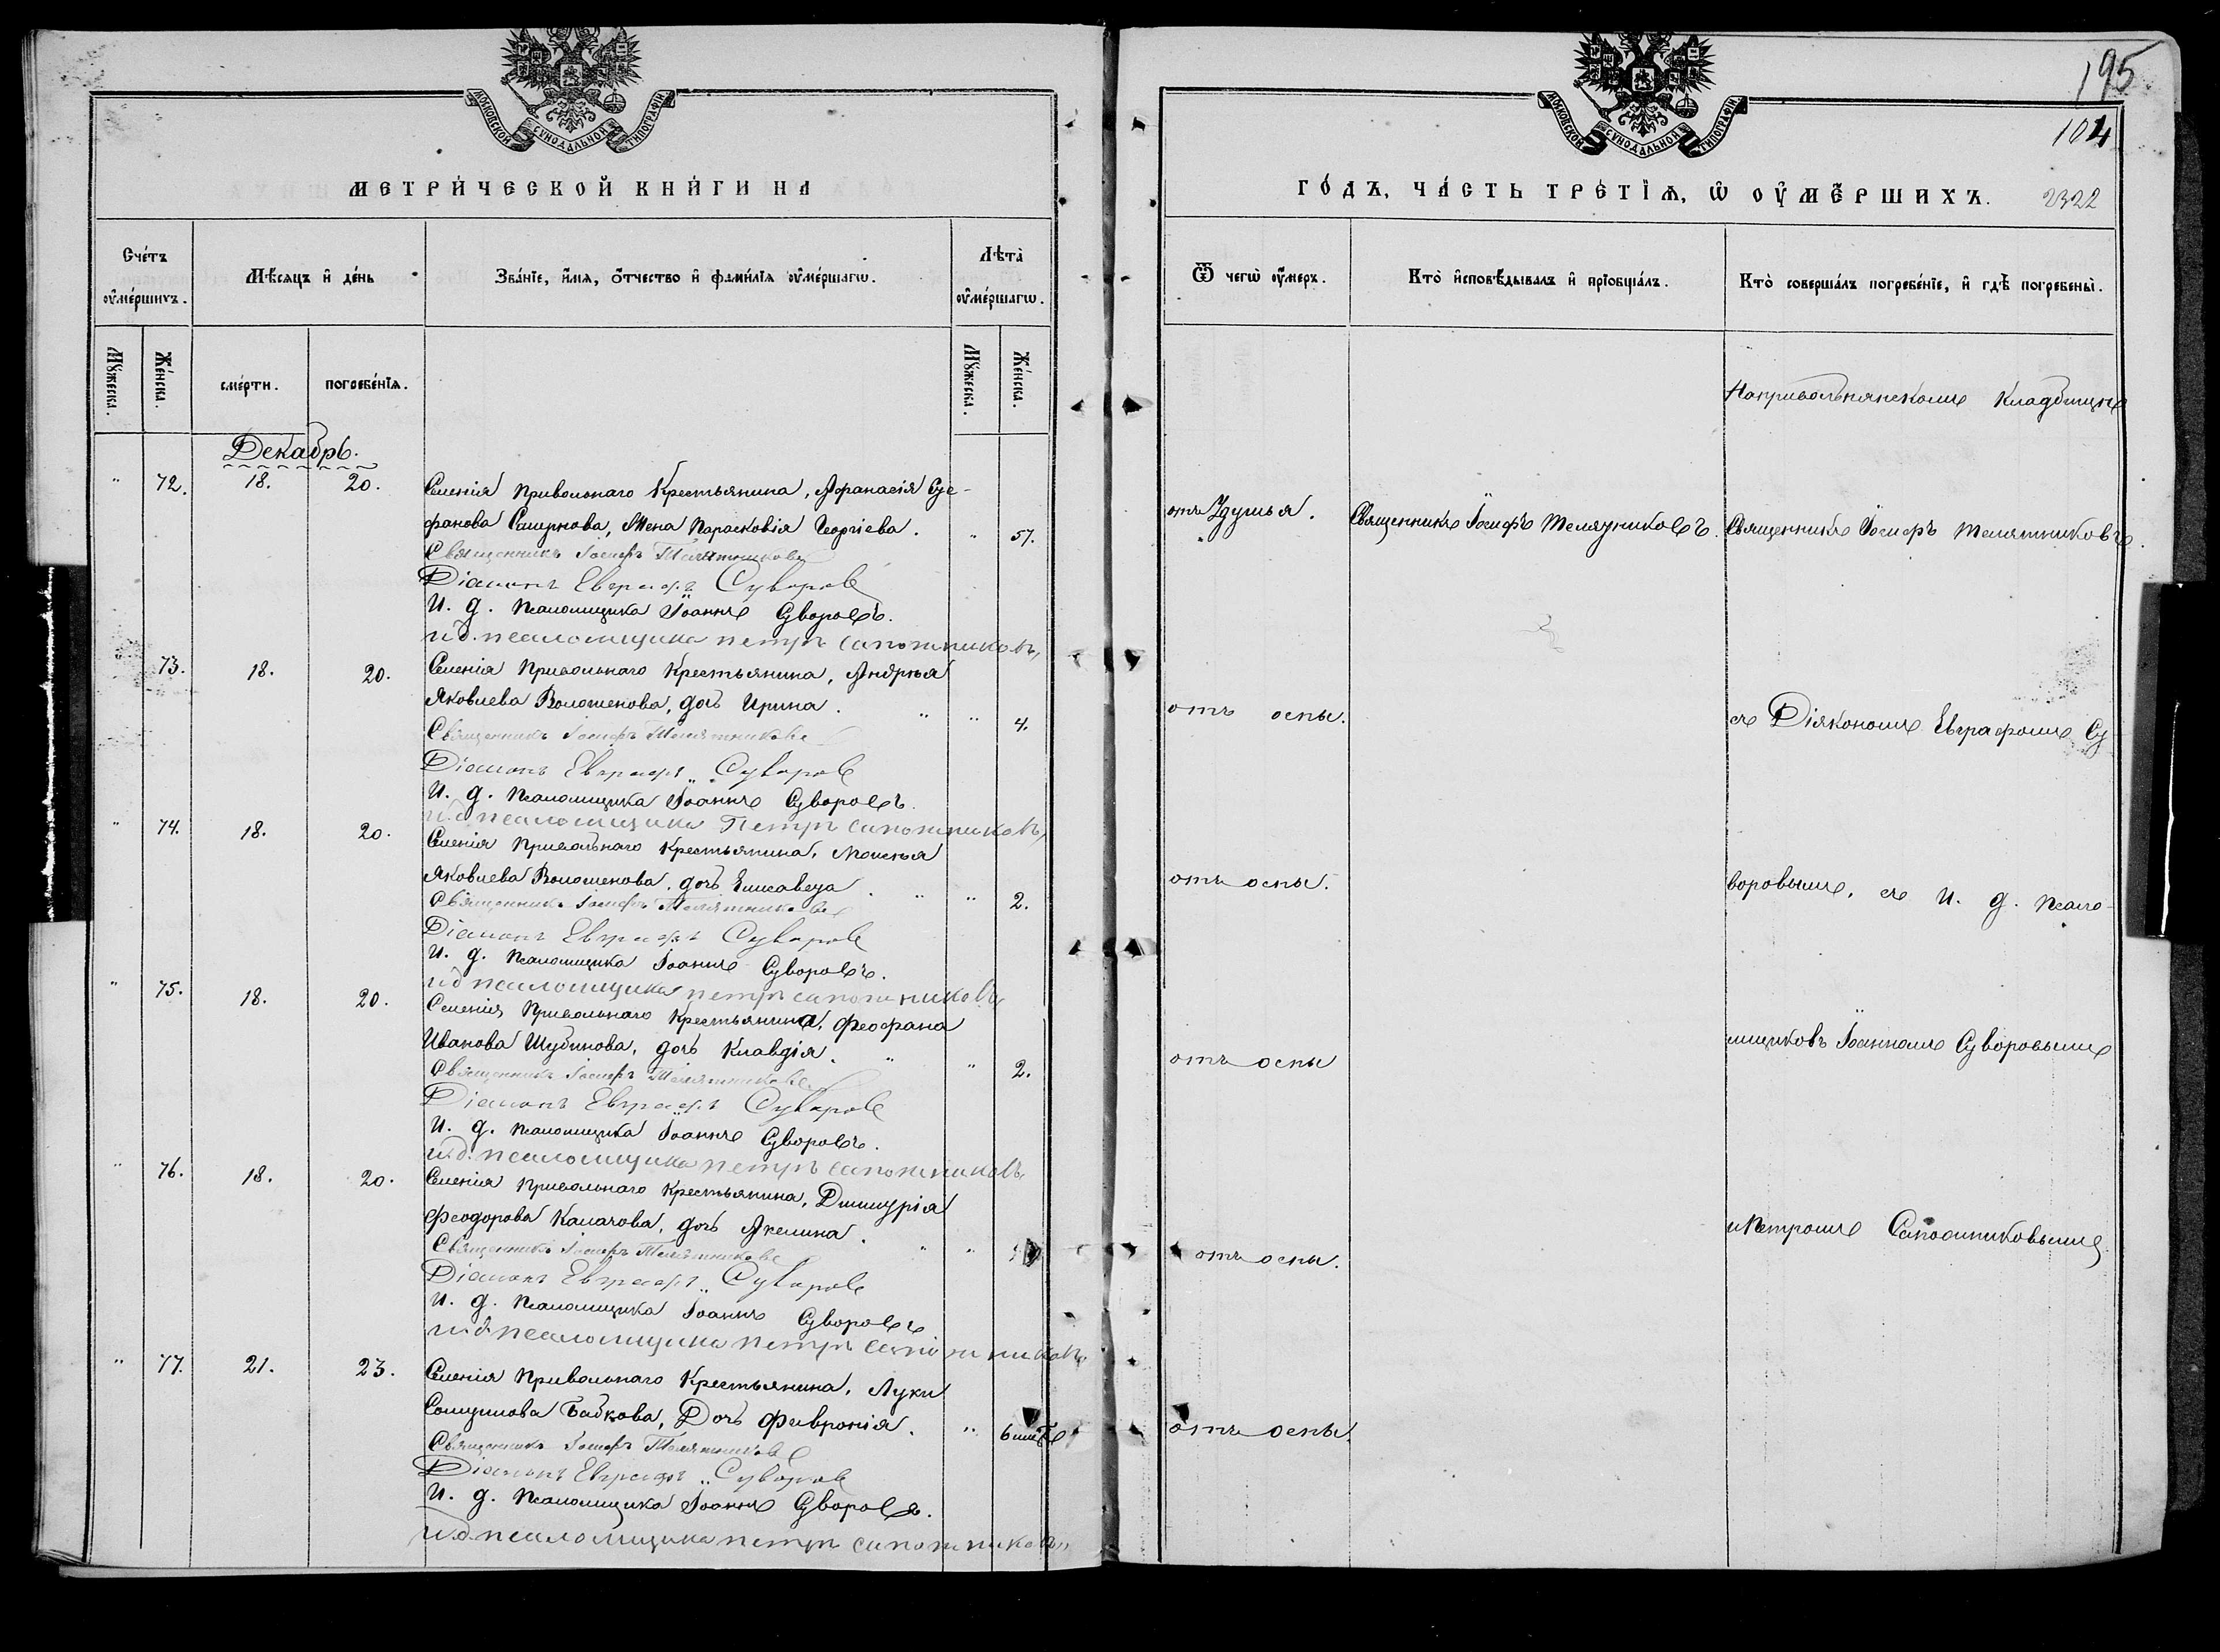 МОСКОВСКОЙ СѴНОДАЛЬНОЙ ТИПОГРАФІИ
МЕТРИ́ЧЕСКОЙ КНИ́ГИ НА
Сче́тъ оу҆ме́ршихъ.
Мѣ́сяцъ и҆ де́нь
Зва́нїе, и҆́мя, ѻ҆́тчество и҆ фами́лїя оу҆ме́ршагѡ.
Лѣ́та оу҆ме́ршагѡ.
Мꙋ́жеска.
Же́нска.
сме́рти.
погребе́нїѧ.
Мꙋ́жеска.
Же́нска.
Декабрь.
" 72. 18. 20. Селенія Привольнаго Крестьянина, Афанасія Сте-
фанова Смирнова, Жена Парасковія Георгіева. " 57.
Священникъ Іосифъ Телятниковъ
Діаконъ Евграфъ Суворовъ
И. д. Псаломщика Іоаннъ Суворовъ.
и.д. псаломщика петръ сапожниковъ,
73. 18. 20. Селенія Привольнаго Крестьянина, Андрея
Яковлева Волошенова, дочь Ирина. " " 4.
Священникъ Іосифъ Телятниковъ
Діаконъ Евграфъ Суворовъ
И. д. Псаломщика Іоаннъ Суворовъ.
и.д. псаломщика Петръ сапожниковъ,
" 74. 18. 20. Селенія Привольнаго Крестьянина, Моисея
Яковлева Волошенова, дочь Елисавета. " " 2.
Священникъ Іосифъ Телятниковъ
Діаконъ Евграфъ Суворовъ
И. д. Псаломщика Іоаннъ Суворовъ.
и.д псаломщика петръ сапожниковъ
" 75. 18. 20. Селенія Привольнаго Крестьянина, Феофана
Иванова Шубинова, дочь Клавдія. " " 2.
Священникъ Іосифъ Телятниковъ
Діаконъ Евграфъ Суворовъ
И. д. Псаломщика Іоаннъ Суворовъ.
и.д. псаломщика петръ сапожниковъ
" 76. 18. 20. Селенія Привольнаго Крестьянина, Димитрія
Феодорова Калачова, дочь Акелина. " "
Священникъ Іосифъ Телятниковъ
Діаконъ Евграфъ Суворовъ
И. д. Псаломщика Іоаннъ Суворовъ
и.д псаломщика петръ сапожниковъ
" 77. 21. 23. Селенія Привольнаго Крестьянина, Луки
Бабкова, Дочь Феврокія. "
Священникъ Іосифъ Телятниковъ
Діаконъ Евграфъ Суворовъ
И. д. Псаломщика Іоаннъ Суворовъ.
и.д. псаломщика петръ сапожниковъ
195
104
МОСКОВСКОЙ СѴНОДАЛЬНОЙ ТИПОГРАФІИ
ГО́ДЪ, ЧА́СТЬ ТРЕ́ТЇѦ, Ѡ҆ ОУ҆МЕ́РШИХЪ. 2322
Ѿ чегѡ̀ оу҆́меръ.
Кто̀ и҆сповѣ́дывалъ и҆ прїобща́лъ.
Кто̀ соверша́лъ погребе́нїе, и҆ гдѣ̀ погребены̀.
На привольнянскомъ Кладбищѣ
отъ Удушья. Священникъ Іосифъ Телятниковъ. Священникъ Іосифъ Телятниковъ.
отъ оспы. съ Діякономъ Евграфомъ Су
отъ оспы. воровымъ, съ И. д. Псало-
отъ оспы мщиковъ Іоанномъ Суворовымъ
отъ оспы. и Петромъ Сапожниковымъ
отъ оспы.